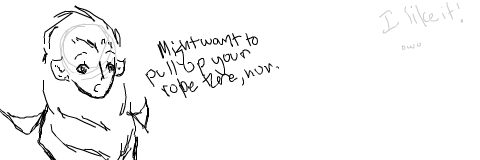 Might want to
pull up your
robe there, hun.
I like it!
owo